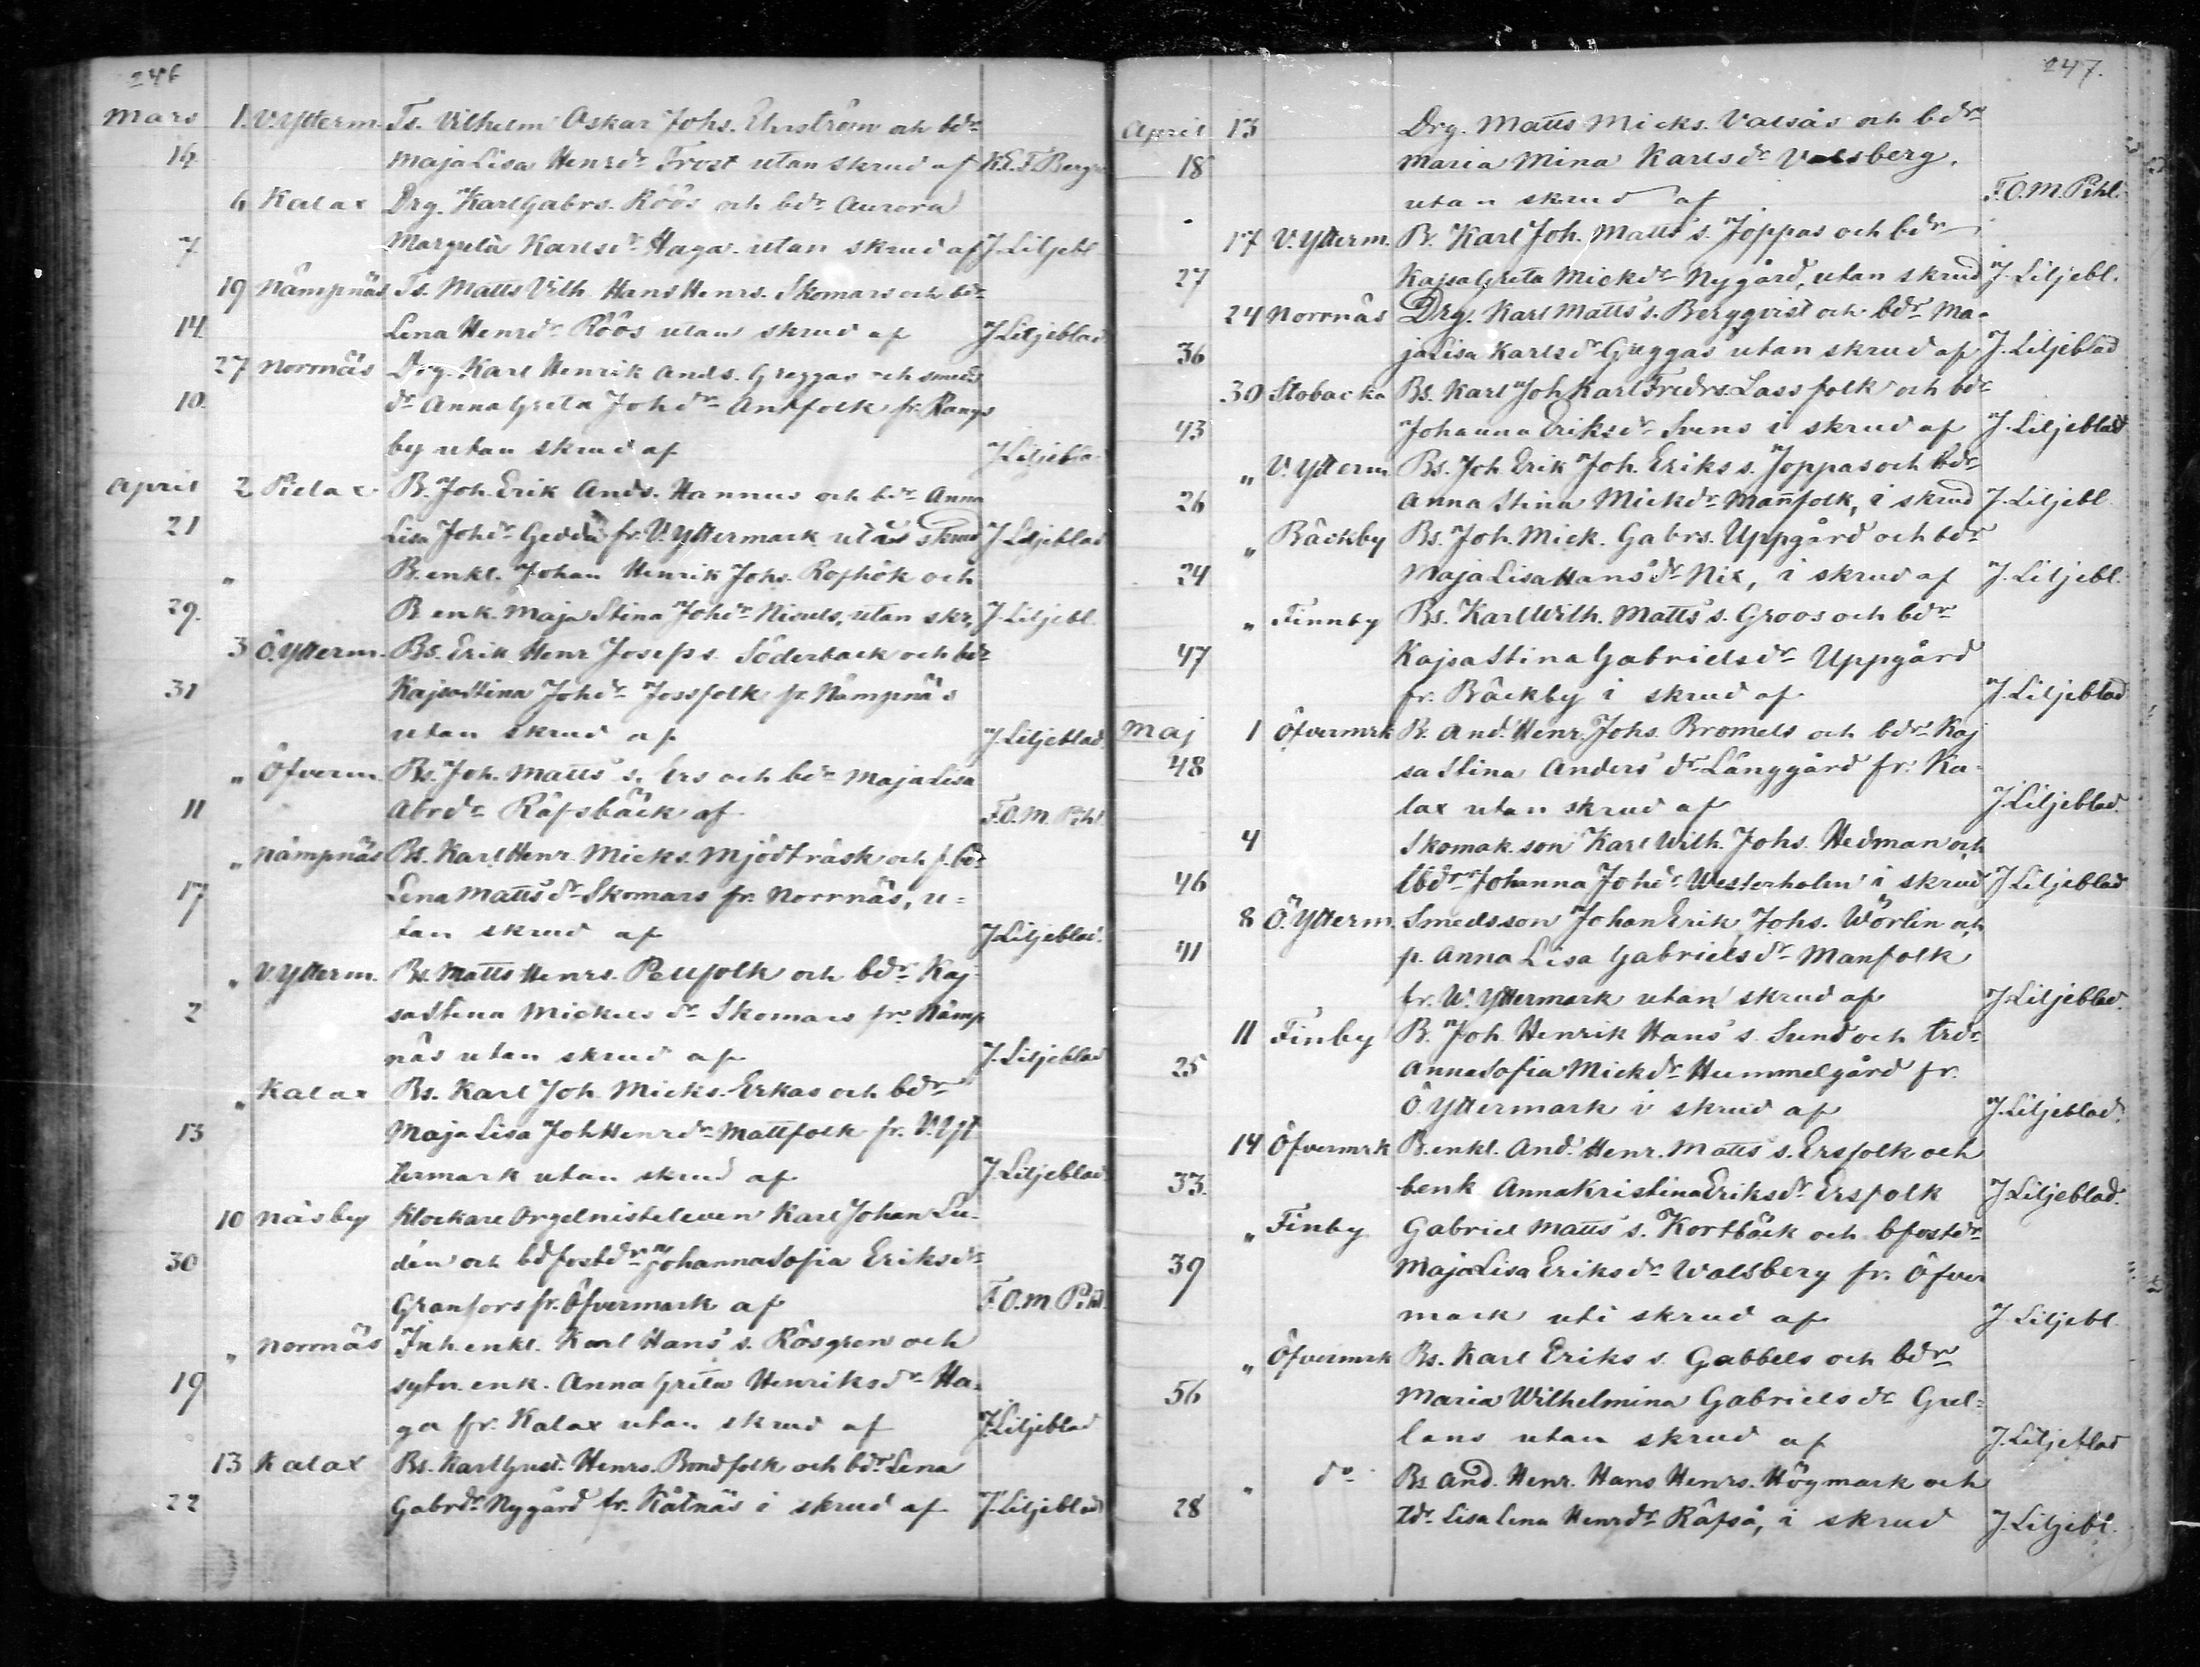 246
Mars 1. V. Ytterm. Ts. Vilhelm Oskar Johs. Ehrström och bdr
16 Maja Lisa Henrdr Frost utan skrud af K.E.F. Bergr
6 Kalax Drg. Karl Gabrs. Röös och bdr Aurora
7 Margreta Karlsdr Haga utan skrud af J. Liljebl
19 Nämpnäs Ts. Matts Vilh. Hans Henrs. Skomars och bdr
14 Lena Henrdr Röös utan skrud af J Liljeblad
27 Norrnäs Drg. Karl Henrik Ands. Greggas och smeds
10. dr Anna Greta Johdr Antfolk fr. Rangs
by utan skrud af J Liljebla
April 2 Pielax B. Joh. Erik Ands. Hannus och bdr Anna
21 Lisa Johdr Gedda fr. V. Yttermark utan skrud J Liljeblad
" B. enkl. Johan Henrik Johs. Rofhök och
29. B enk. Maja Stina Johdr Nisuls, utan skr, J. Liljebl.
3 Ö. Ytterm. Bs. Erik Henr Josefs s. Söderback och bdr
31 Kajsa Stina Johdr Jossfolk fr. Nämpnäs
utan skrud af J Liljeblad
" Öfverm. Bs. Joh. Matts' s. Ers och bdr Maja Lisa
11 Abrdr Räfsbäck af F.O.M. Pihl
" Nämpnäs Bs. Karl Henr. Micks. Mjödträsk och f. bdr
17 Lena Matts' dr Skomars fr. Norrnäs, u=
tan skrud af J Liljeblad.
" V. Ytterm. Bs. Matts Henrs. Pellfolk och bdr Kaj
2 sa Stina Mickels dr Skomars fr. Nämp
näs utan skrud af J. Liljeblad
" Kalax Bs. Karl Joh. Micks. Erkas och bdr
13 Maja Lisa Joh Henrdr Mattfolk fr. V. Yt
termark utan skrud af J Liljeblad
10 Näsby Klockare Orgelnisteleven Karl Johan Lu-
30 dén och bdfostdr Johanna Sofia Eriksdr
Granfors fr. Öfvermark af F.O.M. Pihl.
" Norrnäs Inh. enkl. Karl Hans' s. Rösgren och
19 sytn. enk. Anna Greta Henriksdr Ha-
ga fr. Kalax utan skrud af J Liljeblad
13 Kalax Bs. Karl Gust. Henrs. Bondfolk och bdr Lena
22 Gabrdr Nygård fr. Kåtnäs i skrud af J. Liljeblad
247.
April 13 Drg. Matts Micks. Valsås och bdr
18 Maria Mina Karlsdr Valsberg,
utan skrud af F.O.M. Pihl.
17 V. Ytterm. B. Karl Joh. Matts' s. Joppas och bdr
27 Kajsa Greta Mickdr Nygård, utan skrud J. Liljebl.
24 Norrnäs Drg. Karl Matts' s. Bergqvist och bdr Ma-
36 ja Lisa Karlsdr Greggas utan skrud af J. Liljeblad
30 Stobacka Bs. Karl Joh Karl Fredrs. Lassfolk och bdr
43 Johanna Eriksdr Svens i skrud af J. Liljeblad
" V. Ytterm Bs. Joh. Erik Joh. Eriks s. Joppas och bdr
26 Anna Stina Mickdr Mañfolk, i skrud J. Liljebl.
" Bäckby Bs. Joh. Mick. Gabrs. Uppgård och bdr
24 Maja Lisa Hans' dr Nix, i skrud af J. Liljebl.
" Finnby Bs. Karl Wilh. Matts' s. Groos och bdr
47 Kajsa Stina Gabrielsdr Uppgård
fr. Bäckby i skrud af J. Liljeblad
Maj 1 Öfvermrk B. And. Henr. Johs. Bromels och bdr Kaj
48 sa Stina Anders' dr Långgård fr. Ka-
lax utan skrud af J Liljeblad.
4 Skomak. son Karl Wilh. Johs. Hedman och
46 bdr Johanna Johdr Westerholm i skrud J Liljeblad
8 Ö. Ytterm. Smedsson Johan Erik Johs. Wörlin och
41 p. Anna Lisa Gabrielsdr Manfolk
fr. W. Yttermark utan skrud af J Liljeblad.
11 Finby B. Joh. Henrik Hans' s. Sund och trdr
25 Anna Sofia Mickdr Hummelgård fr.
Ö Yttermark i skrud af J. Liljeblad.
14 Öfvermrk B. enkl. And. Henr. Matts' s. Ersfolk och
33. benk Anna Kristina Eriksdr Ersfolk J Liljeblad.
" Finby Gabriel Matts' s. Kortbäck och bfostdr
39 Maja Lisa Eriksdr Walsberg fr. Öfver
mark uti skrud af J Liljebl.
" Öfvermrk Bs. Karl Eriks s. Gabbels och bdr
56 Maria Wilhelmina Gabrielsdr Grel=
lans utan skrud af J. Liljeblad
" do Bs And. Henr. Hans Henrs. Högmark och
28 tdr Lisa Lena Henrdr Räfså, i skrud J Liljebl.